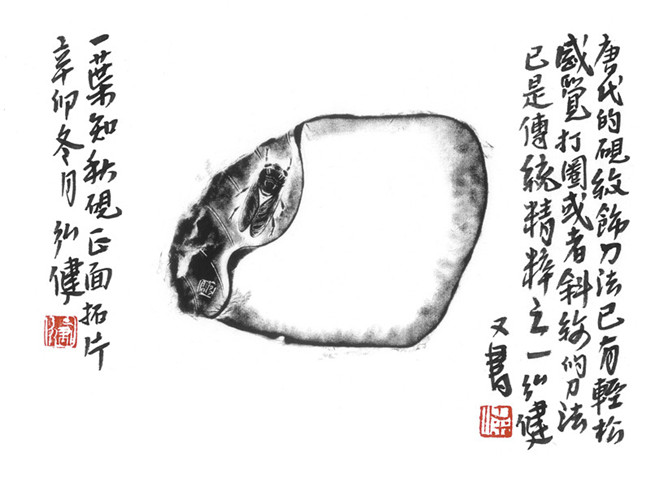 唐代的硯紋飾刀法已有輕松
感覺打圈或者斜線的刀法
已是傳統精粹之一弘健
又書
一葉知秋硯正面拓片
辛卯冬月弘健